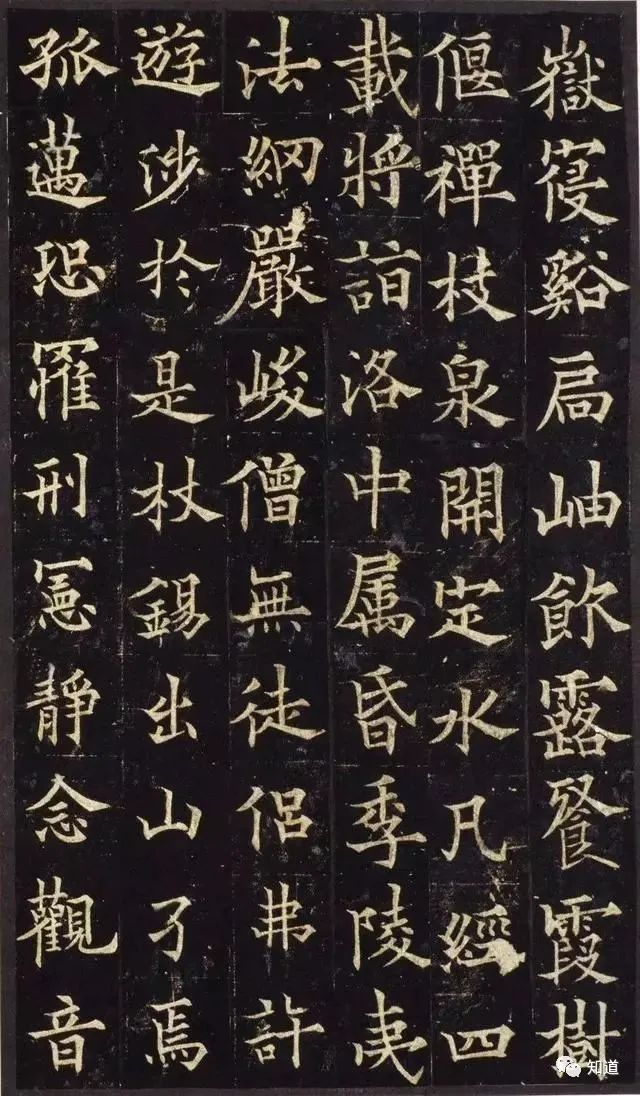 嶽寝谿扃岫飲露餐霞樹
偃禪枝泉開定水凡經四
載將詣洛中属昏季陵夷
法綱嚴峻僧無徒侣弗許
遊涉於是杖錫出山孑焉
孤邁恐罹刑憲静念觀音
知道